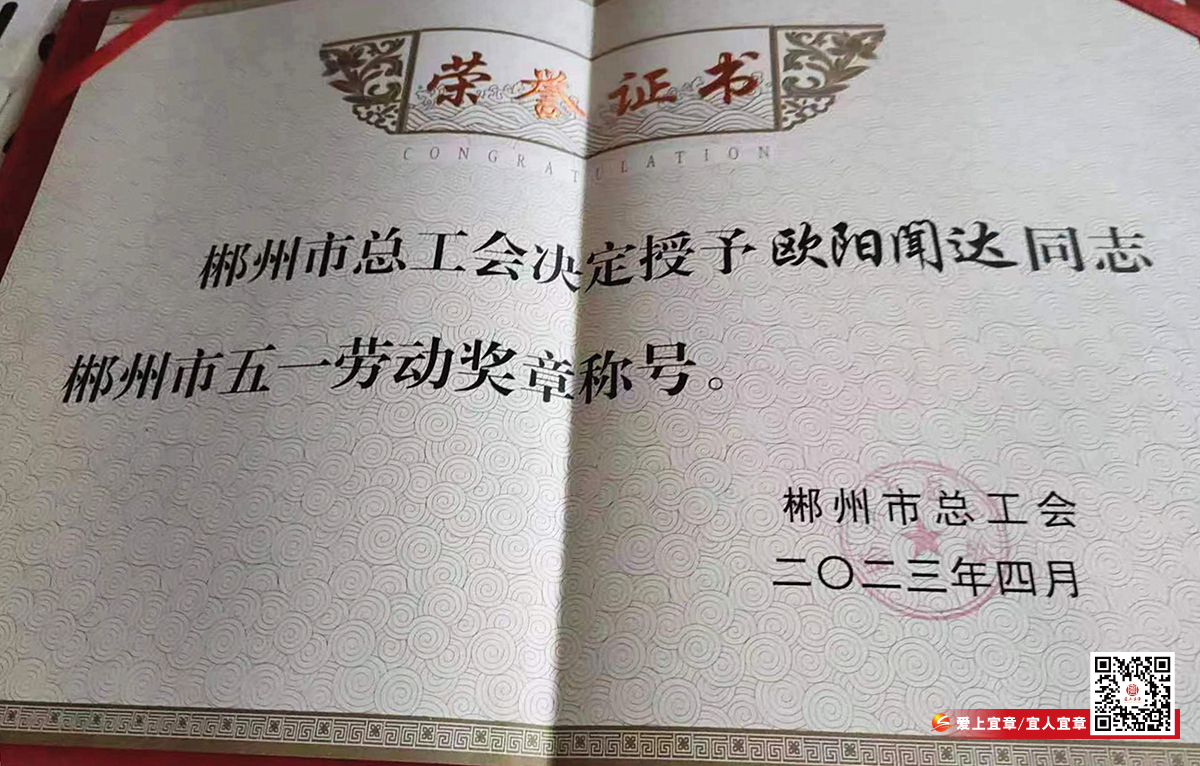 荣誉证书
CONGRATULATION
郴州市总工会决定授予欧阳闻达同志
郴州市五一劳动奖章称号。
郴州市总工会
二〇二三年四月
爱上宜章/宜人宜章